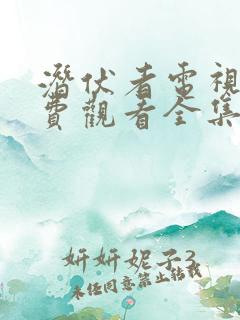 潛伏者電視
費觀看全集
妍妍妮子3
未经同意禁止转载